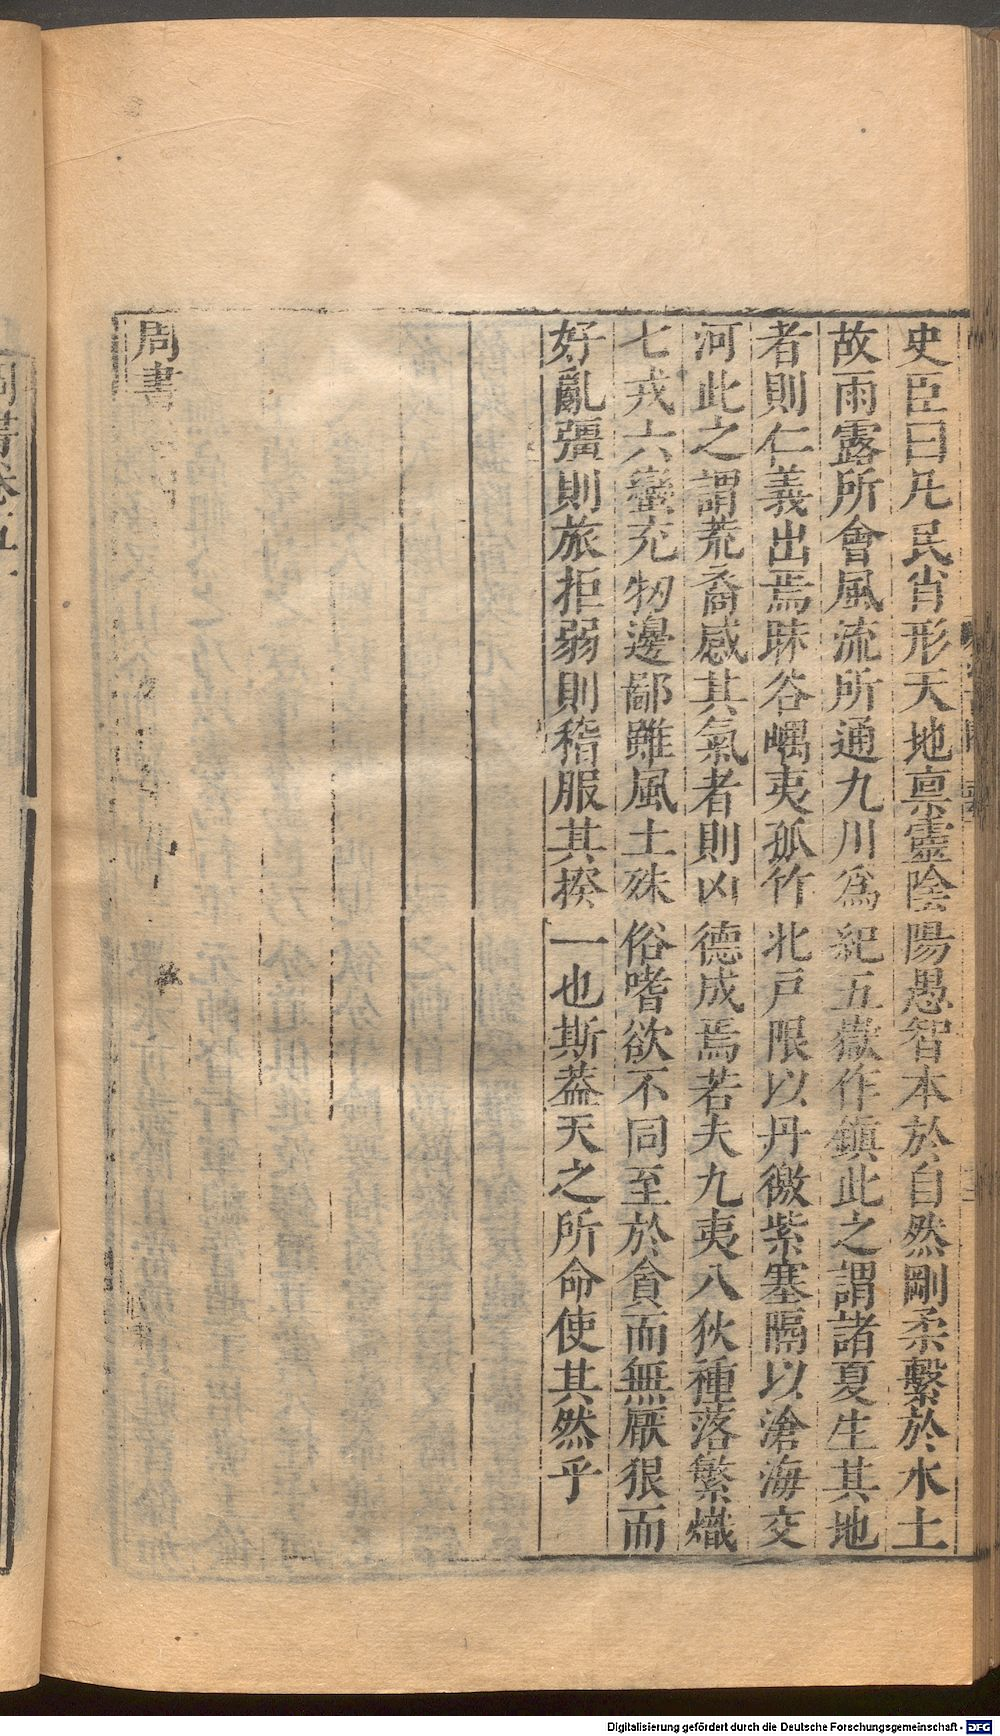 史臣曰凡民肖形天地稟靈陰陽愚智本於自然剛柔繫於水土
故雨露所會風流所通九川爲紀五嶽作鎮此之謂諸夏生其地
者則仁義出焉昧谷嵎夷孤竹北戸限以丹徼紫塞隔以滄海交
河此之謂荒裔感其氣者則凶德成焉若夫九夷八狄種落繁熾
七戎六蠻充牣邊鄙雖風土殊俗嗜欲不同至於貪而無厭狠而
好亂彊則旅拒弱則稽服其揆一也斯葢天之所命使其然乎
周書
周書卷五十
Digitalisierung gefördert durch die Deutsche Forschungsgemeinschaft - DFG